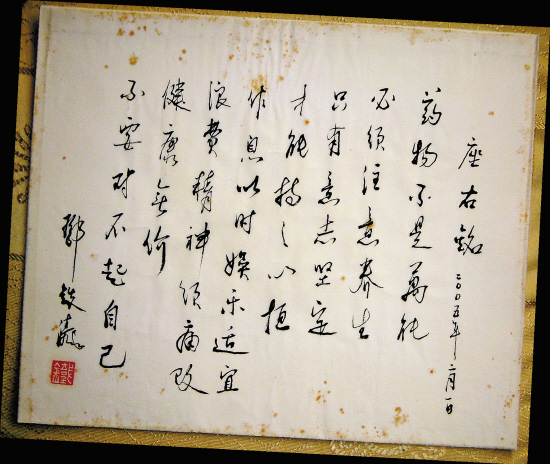 座右銘 二〇〇五年二月一日
药物不是萬能
必须注意養生
只有意志坚定
才能持之以恒
作息以时娱乐适宜
浪費精神须痛改
健康無价
不要对不起自己
鄧銕涛